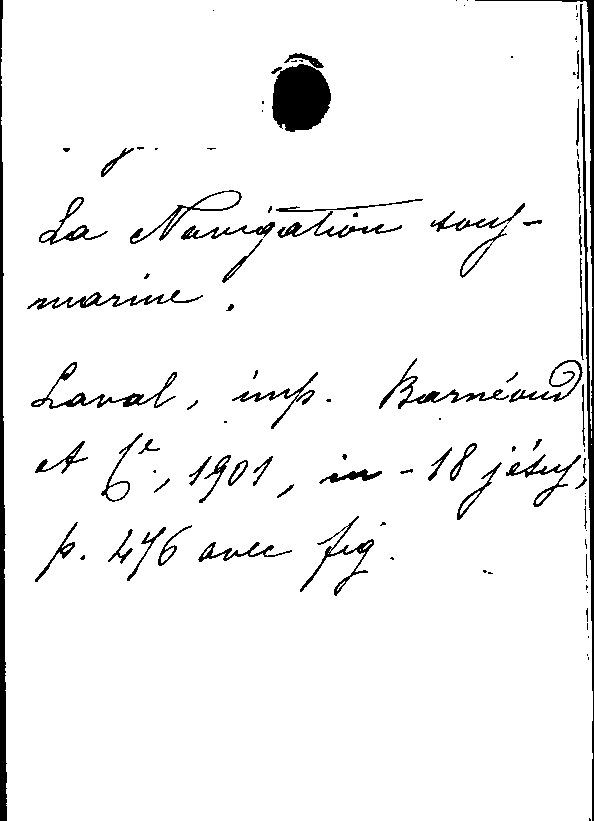 La Navigation sous-
marine.
Laval, imp. Barnéoud
et Cie, 1901, in-18 jésus,
p. 476 avec fig.